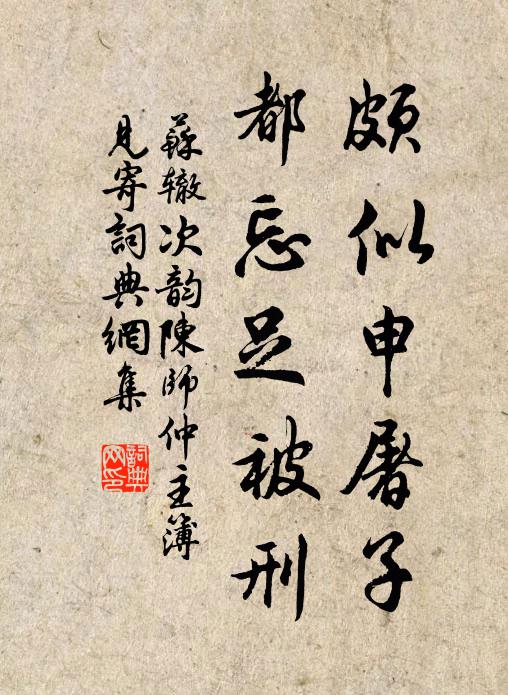 頗似申屠子
都忘足被刑
蘇轍次韵陳師仲主簿
見寄詞典網集
詞典网印